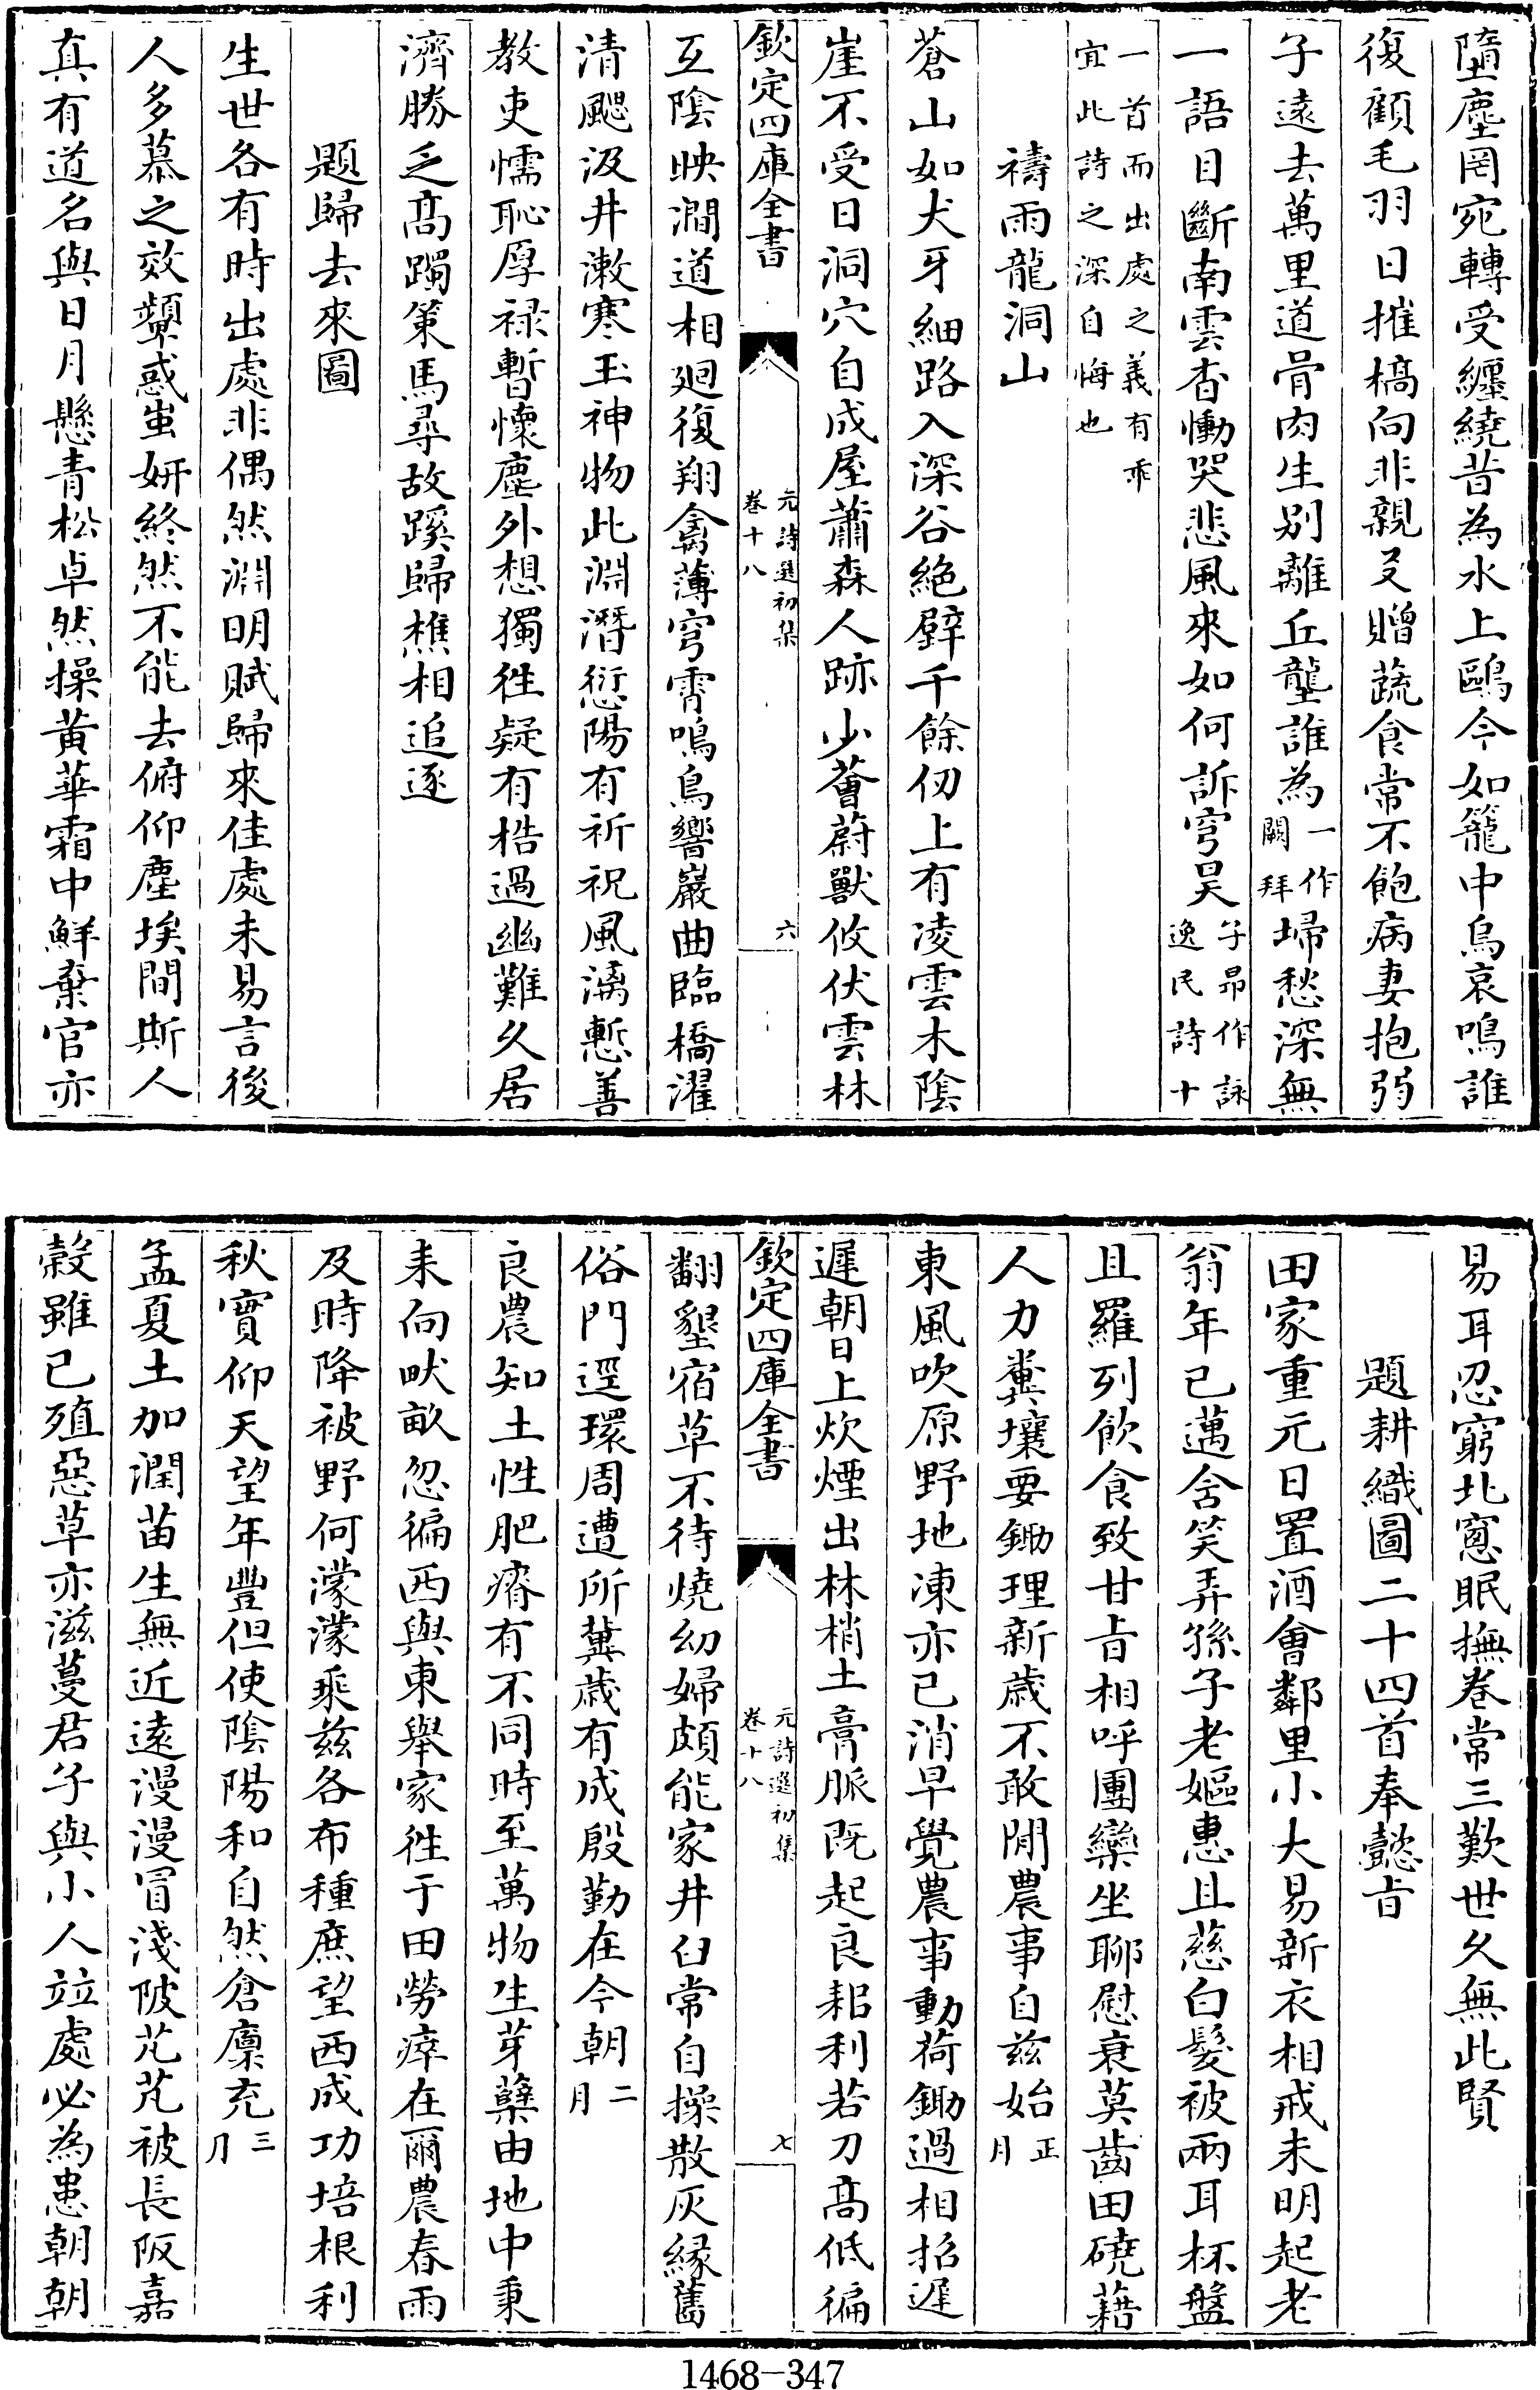 墮塵罔宛轉受纏繞昔為水上鷗今如籠中鳥哀鳴誰
復顧毛羽日摧槁向非親友贈蔬食常不飽病妻抱弱
子遠去萬里道骨肉生别離丘壟誰為一作闕拜埽愁深無
一語目斷南雲杳慟哭悲風來如何訴穹昊子昻作詠逸民詩十
一首而出處之義有乖宜此詩之深自悔也
禱雨龍洞山
蒼山如犬牙細路入深谷絶壁千餘仞上有凌雲木陰
崖不受日洞穴自成屋蕭森人跡少薈蔚獸攸伏雲林
欽定四庫全書
元詩選初集
卷十八
六
互隂映澗道相廻復翔禽薄穹霄鳴鳥響巖曲臨橋濯
清颸汲井漱寒玉神物此淵潛愆陽有祈祝風漓慙善
教吏懦恥厚禄暫懷塵外想獨徃疑有梏過幽難久居
濟勝乏髙躅策馬尋故蹊歸樵相追逐
題歸去來圖
生世各有時出處非偶然淵明賦歸來佳處未易言後
人多慕之效顰惑蚩妍終然不能去俯仰塵埃間斯人
真有道名與日月懸青松卓然操黄華霜中鮮棄官亦
易耳忍窮北窻眠撫卷常三歎世久無此賢
題耕織圖二十四首奉懿旨
田家重元日置酒會鄰里小大易新衣相戒未明起老
翁年已邁含笑弄孫子老嫗惠且慈白髮被兩耳杯盤
且羅列飲食致甘旨相呼團欒坐聊慰衰莫齒田磽藉
人力糞壤要鋤理新歲不敢閒農事自兹始正月
東風吹原野地凍亦已消早覺農事動荷鋤過相招遲
遲朝日上炊煙出林梢土膏脈既起良耜利若刀髙低徧
欽定四庫全書
元詩選初集
卷十八
七
翻墾宿草不待燒幼婦頗能家井臼常自操散灰縁舊
俗門逕環周遭所冀歲有成殷勤在今朝二月
良農知土性肥瘠有不同時至萬物生芽蘖由地中秉
耒向畎畝忽徧西與東舉家徃于田勞瘁在爾農春雨
及時降被野何濛濛乘兹各布種庶望西成功培根利
秋實仰天望年豐但使陰陽和自然倉廪充三月
孟夏土加潤苗生無近遠漫漫冒淺陂芃芃被長阪嘉
穀雖已殖惡草亦滋蔓君子與小人竝處必為患朝朝
1468-347